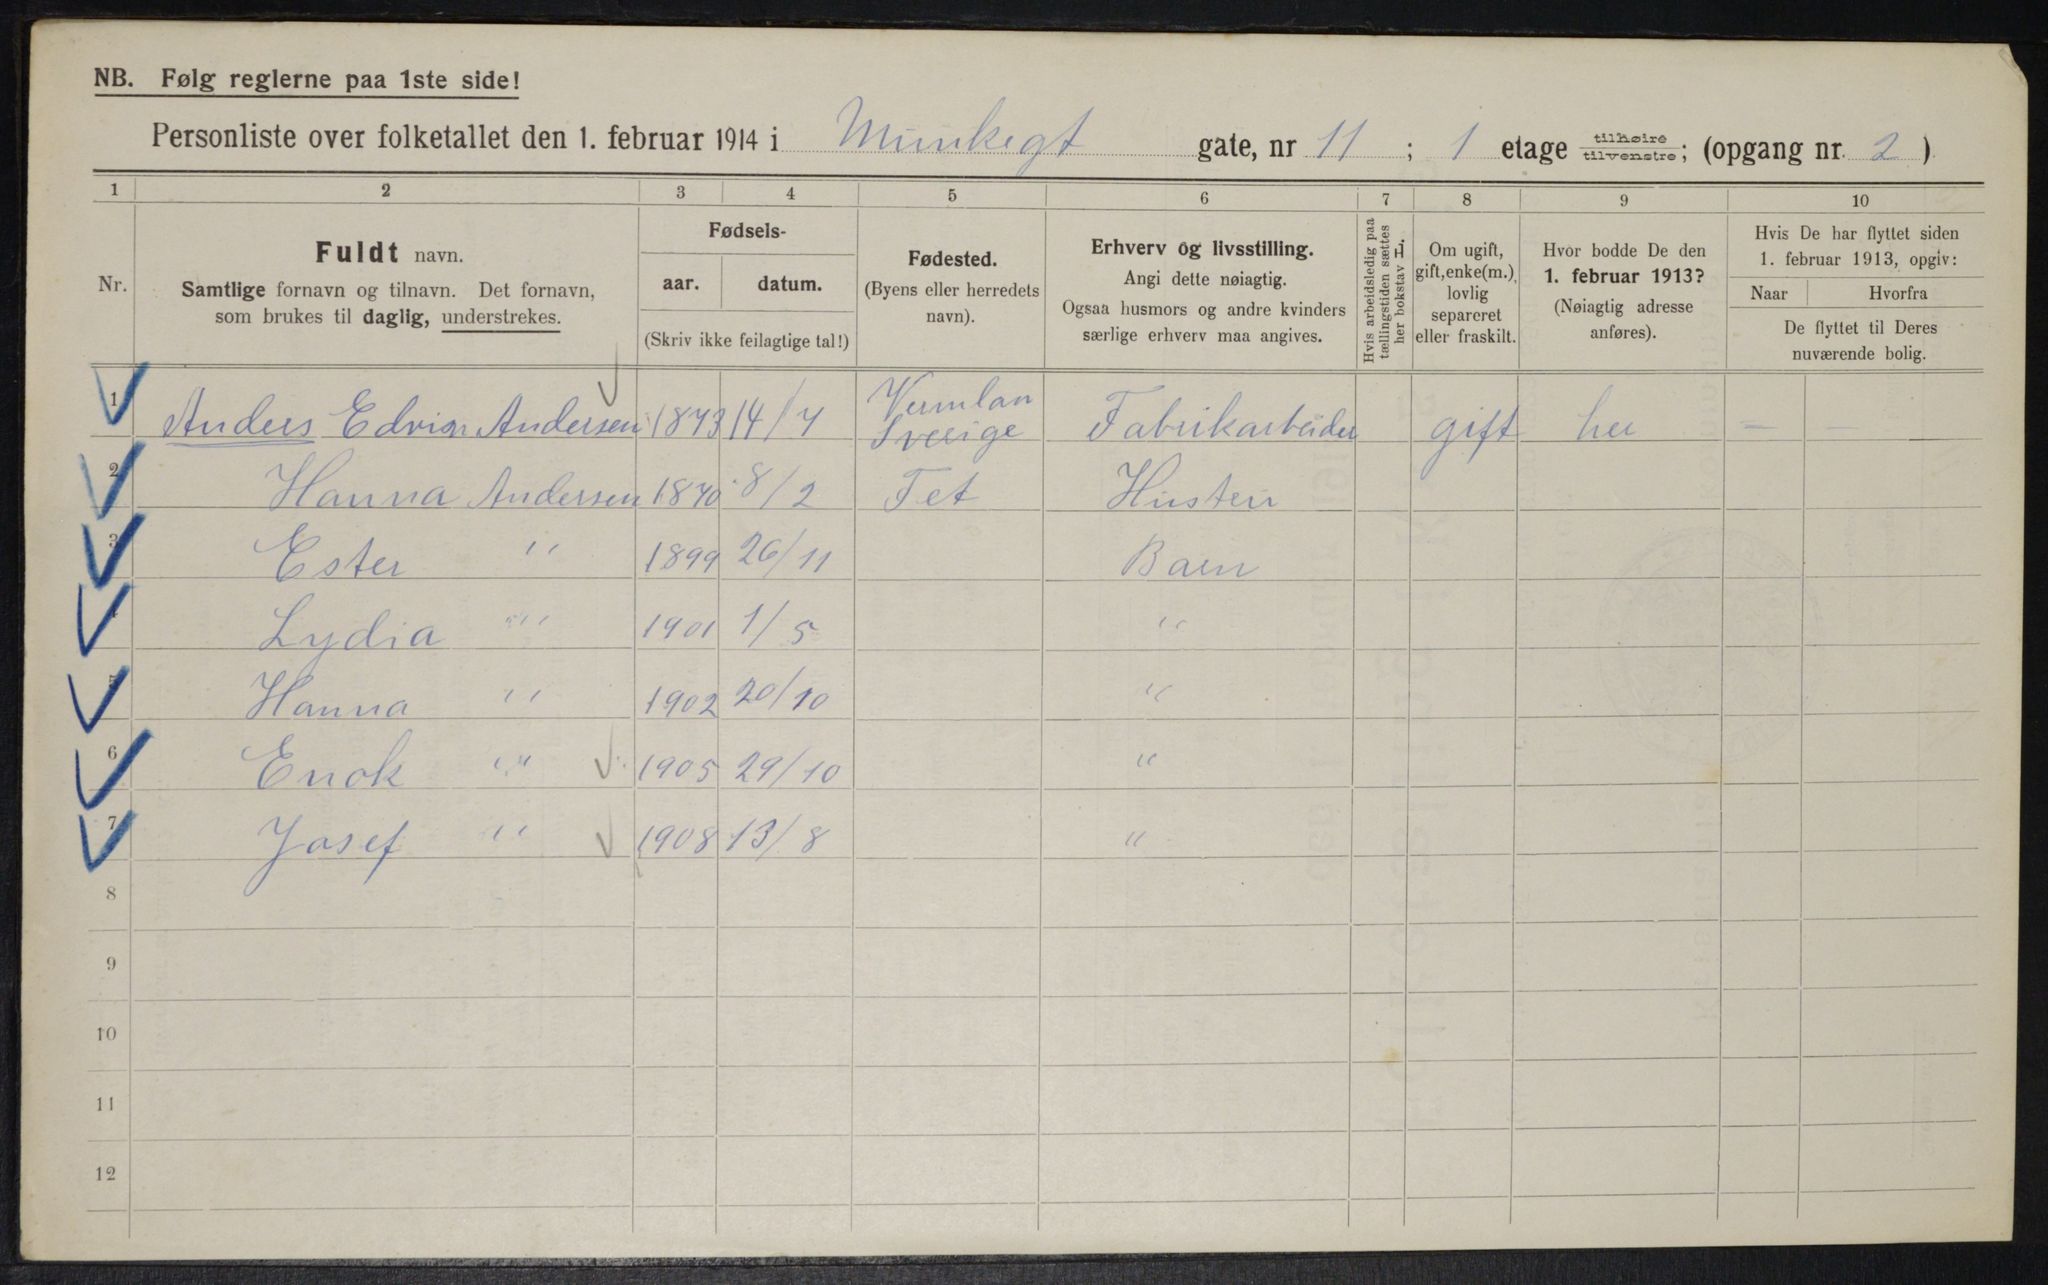 NB. Følg reglerne paa 1ste side!
Personliste over folketallet den 1. februar 1914 i Munkegt gate, nr 11 ; 1 etage tilhøire tilvenstre; (opgang nr. 2 )
1 2 3 4 5 6 7 8 9 10
Nr.
Fuldt navn.
Samtlige fornavn og tilnavn. Det fornavn,
som brukes til daglig, understrekes.
Fødsels-
aar. datum.
(Skriv ikke feilagtige tal!)
Fødested.
(Byens eller herredets
navn).
Erhverv og livsstilling.
Angi dette nøiagtig.
Ogsaa husmors og andre kvinders
særlige erhverv maa angives.
Hvis arbeidsledig paa
tællingstiden sættes
her bokstav L.
Om ugift,
gift, enke(m.),
lovlig
separeret
eller fraskilt.
Hvor bodde De den
1. februar 1913?
(Nøiagtig adresse
anføres).
Hvis De har flyttet siden
1. februar 1913, opgiv:
Naar Hvorfra
De flyttet til Deres
nuværende bolig.
1 Anders Edvin Andersen 1873 14/7 Vermlan Sverige Fabrikarbeider gift her — —
2 Hanna Andersen 1870 8/2 Fet Husteru
3 Ester " 1899 26/11 Barn
4 Lydia " 1901 1/5 "
5 Hanna " 1902 20/10 "
6 Enok " 1905 29/10 "
7 Josef " 1908 13/8 "
8
9
10
11
12